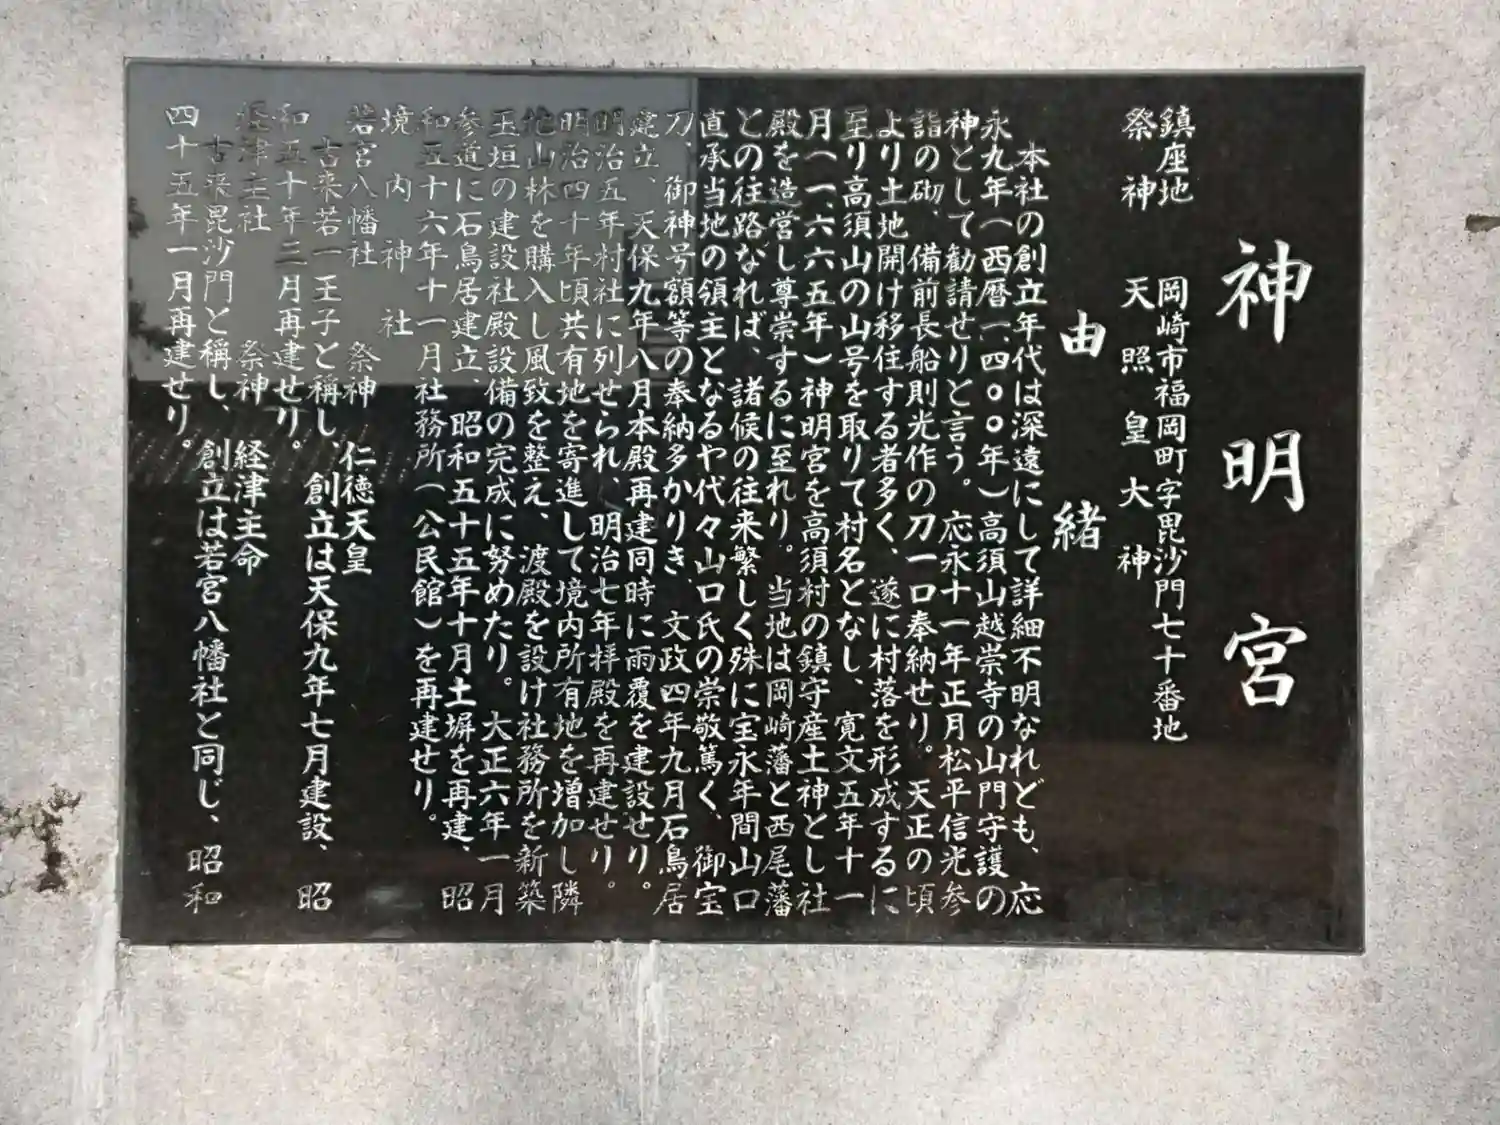 神明宮
鎮座地　岡崎市福岡町字毘沙門七十番地
祭神　天照皇大神
由緒
本社の創立年代は深遠にして詳細不明なれども、応
永九年（西暦一、四〇〇年）高須山越崇寺の山門守護の
神として勧請せりと言う。応永十一年正月松平信光参
詣の砌、備前長船則光作の刀一口奉納せり。天正の頃
より土地開け移住する者多く、遂に村落を形成するに
至り高須山の山号を取りて村名となし、寛文五年十一
月（一、六六五年）神明宮を高須村の鎮守産土神とし社
殿を造営し尊崇するに至れり。当地は岡崎藩と西尾藩
との往路なれば、諸候の往来繁しく殊に宝永年間山口
直承当地の領主となるや代々山口氏の崇敬篤く、御宝
刀、御神号額等の奉納多かりき、文政四年九月石鳥居
建立、天保九年八月本殿再建同時に雨覆を建設せり。
明治五年村社に列せられ、明治七年拝殿を再建せり。
明治四十年頃共有地を寄進して境内所有地を増加し隣
地山林を購入し風致を整え、渡殿を設け社務所を新築
玉垣の建設社殿設備の完成に努めたり。大正六年一月
参道に石鳥居建立、昭和五十五年十月土塀を再建、昭
和五十六年十一月社務所（公民館）を再建せり。
境内神社
若宮八幡社　祭神　仁徳天皇
古来若一王子と稱し、創立は天保九年七月建設、昭
和五十年三月再建せり。
経津主社　祭神　経津主命
古来毘沙門と稱し、創立は若宮八幡社と同じ、昭和
四十五年一月再建せり。